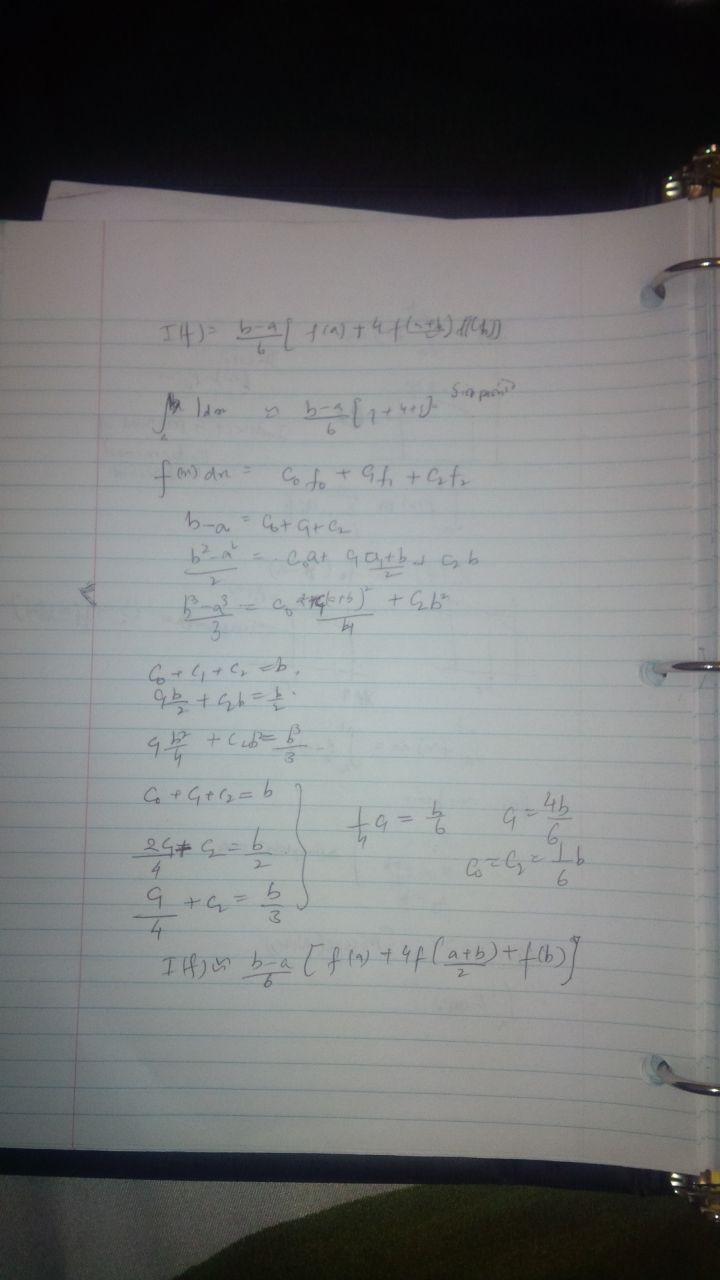 I(f) = b-a/6 [ f(a) + 4 f(a+b/2) f(b)]
∫ 1 dx ≈ b-a/6 [1+4+1]
f(x) dx = C₀f₀ + C₁f₁ + C₂f₂
b-a = C₀+C₁+C₂
b²-a²/2 = C₀a + C₁ a+b/2 + C₂b
b³-a³/3 = C₀a² + C₁(a+b)²/4 + C₂b²
C₀+C₁+C₂ = b.
C₁b/2 + C₂b = b/2.
C₁ b²/4 + C₂b² = b³/3
C₀+C₁+C₂ = b
2C₁/4 + C₂ = b/2 1/4 C₁ = b/6 C₁ = 4b/6
C₁/4 + C₂ = b/3 C₀ = C₂ = 1/6 b
I(f) ≈ b-a/6 [f(a) + 4f(a+b/2) + f(b)]